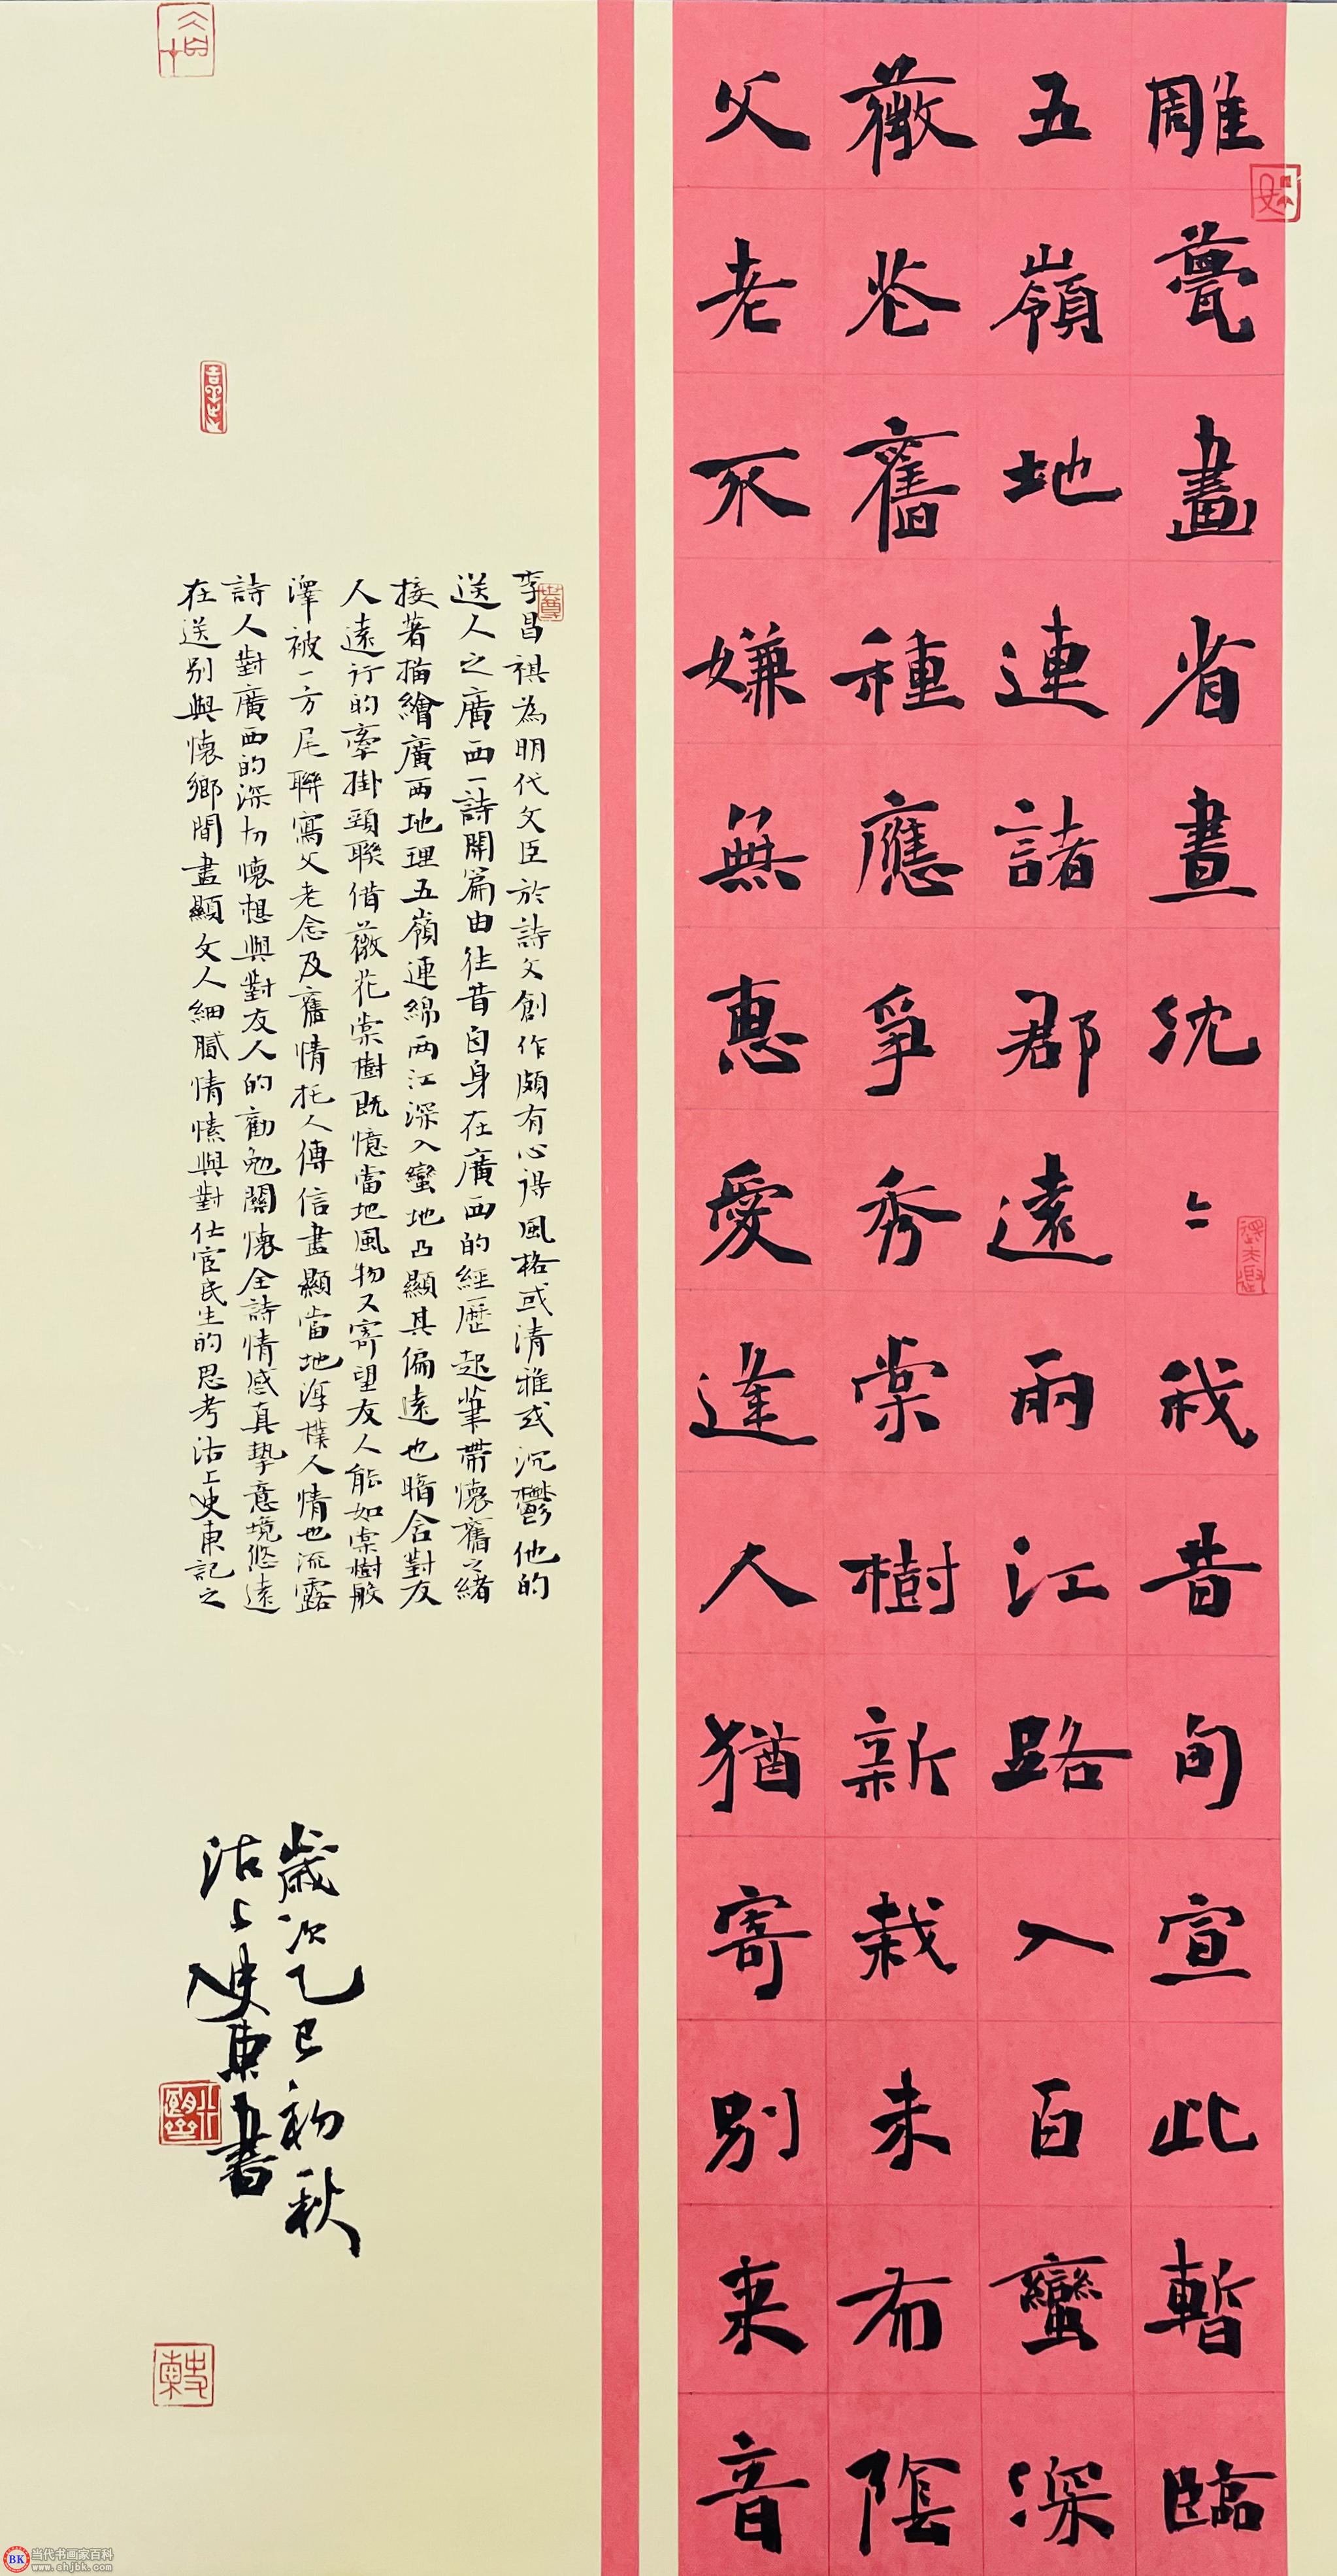 雕甍畫省晝沈〻我昔旬宣此暫臨
五嶺地連諸郡遠兩江路入百蠻深
薇花舊種應爭秀棠樹新栽未布陰
父老不嫌無惠愛逢人猶寄別来音
李昌祺為明代文臣於詩文創作頗有心得風格或清雅或沉鬱他的
送人之廣西一詩開篇由往昔自身在廣西的經歷起筆帶懷舊之緒
接著描繪廣西地理五嶺連綿兩江深入蠻地凸顯其偏遠也暗含對友
人遠行的牽掛頸聯借薇花棠樹既憶當地風物又寄望友人能如棠樹般
澤被一方尾聯寫父老念及舊情托人傳信盡顯當地淳樸人情也流露
詩人對廣西的深切懷想與對友人的勸勉關懷全詩情感真摯意境悠遠
在送別與懷鄉間盡顯文人細膩情愫與對仕宦民生的思考沽上史東記之
歲次乙巳初秋
沽上史東書
当代书画家百科
www.shjbk.com
BK